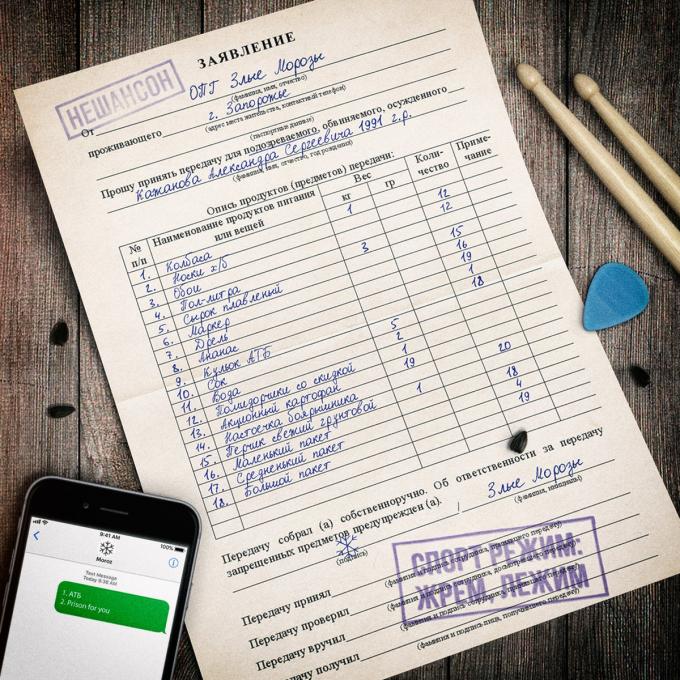 ЗАЯВЛЕНИЕ
НЕШАНСОН
От ОПГ Злые Морозы
(фамилия, имя, отчество)
проживающего г. Запорожье
(адрес места жительства, контактный телефон)
(паспортные данные)
Прошу принять передачу для подозреваемого, обвиняемого, осужденного
Кажанова Александра Сергеевича 1991 г.р.
(фамилия, имя, отчество, год рождения)
Опись продуктов (предметов) передачи:
№ п/п Наименование продуктов питания или вещей Вес кг гр Коли-чество Приме-чание
1. Колбаса 1
2. Носки х/б 12
3. Обои 12
4. Пол-литра
5. Сырок плавленый 3 15
6. Маркер 16
7. Дрель 19
8. Ананас 1
9. Кулёк АТБ 18
10. Сок 5
11. Вода 2
12. Помидорчики со скидкой 1
13. Акционный картофан 19
14. Настоечка боярышника 20
15. Перчик свежий грунтовой 1
16. Маленький пакет 18
17. Средненький пакет 4
18. Большой пакет 19
Передачу собрал (а) собственноручно. Об ответственности за передачу
запрещенных предметов предупрежден (а). / Злые Морозы
(подпись) (фамилия, инициалы)
Передачу принял
(фамилия и подпись сотрудника, принявшего передачу)
Передачу проверил
Передачу вручил
Передачу получил
(фамилия и подпись лица, получившего передачу)
СПОРТ РЕЖИМ:
ЖРЁМ, ЛЕЖИМ
9:41 AM 100%
Moroz
Text Message
Today 9:38 AM
1. АТБ
2. Prison for you